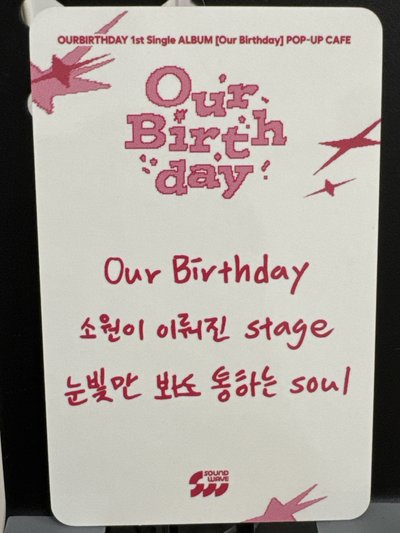 OURBIRTHDAY 1st Single ALBUM [Our Birthday] POP-UP CAFE
Our
Birth
day
Our Birthday
소원이 이뤄진 stage
눈빛만 봐도 통하는 soul
SOUND
WAVE